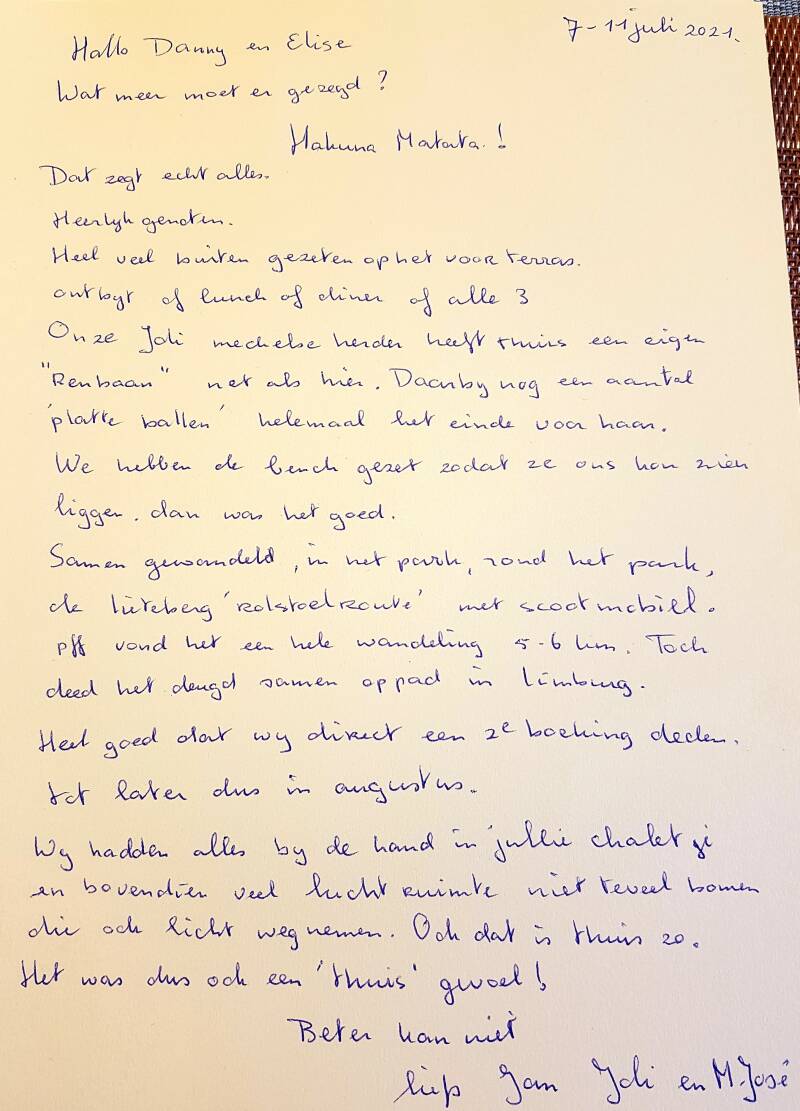 7-11 juli 2021.
Hallo Danny en Elise
Wat meer moet er gezegd?
Hakuna Matata.!
Dat zegt echt alles.
Heerlyk genoten.
Heel veel buiten gezeten op het voor terras.
ontbyt of lunch of diner of alle 3
Onze Joli mechelse herder heeft thuis een eigen
"Renbaan" net als hier. Daarby nog een aantal
'platte ballen' helemaal het einde voor haar.
We hebben de bench gezet zodat ze ons kon zien
liggen. dan was het goed.
Samen gewandeld, in het park, rond het park,
de lieteberg 'rolstoelroute' met scootmobiel.
pff vond het een hele wandeling 5-6 km. Toch
deed het deugd samen op pad in limburg.
Heel goed dat wy direct een 2e boeking deden.
tot later dus in augustus.
Wy hadden alles by de hand in jullie chalet
en bovendien veel lucht ruimte niet teveel bomen
die ook licht wegnemen. Ook dat is thuis zo.
Het was dus ook een 'thuis' gevoel!
Beter kan niet
liefs Jan Joli en M.José